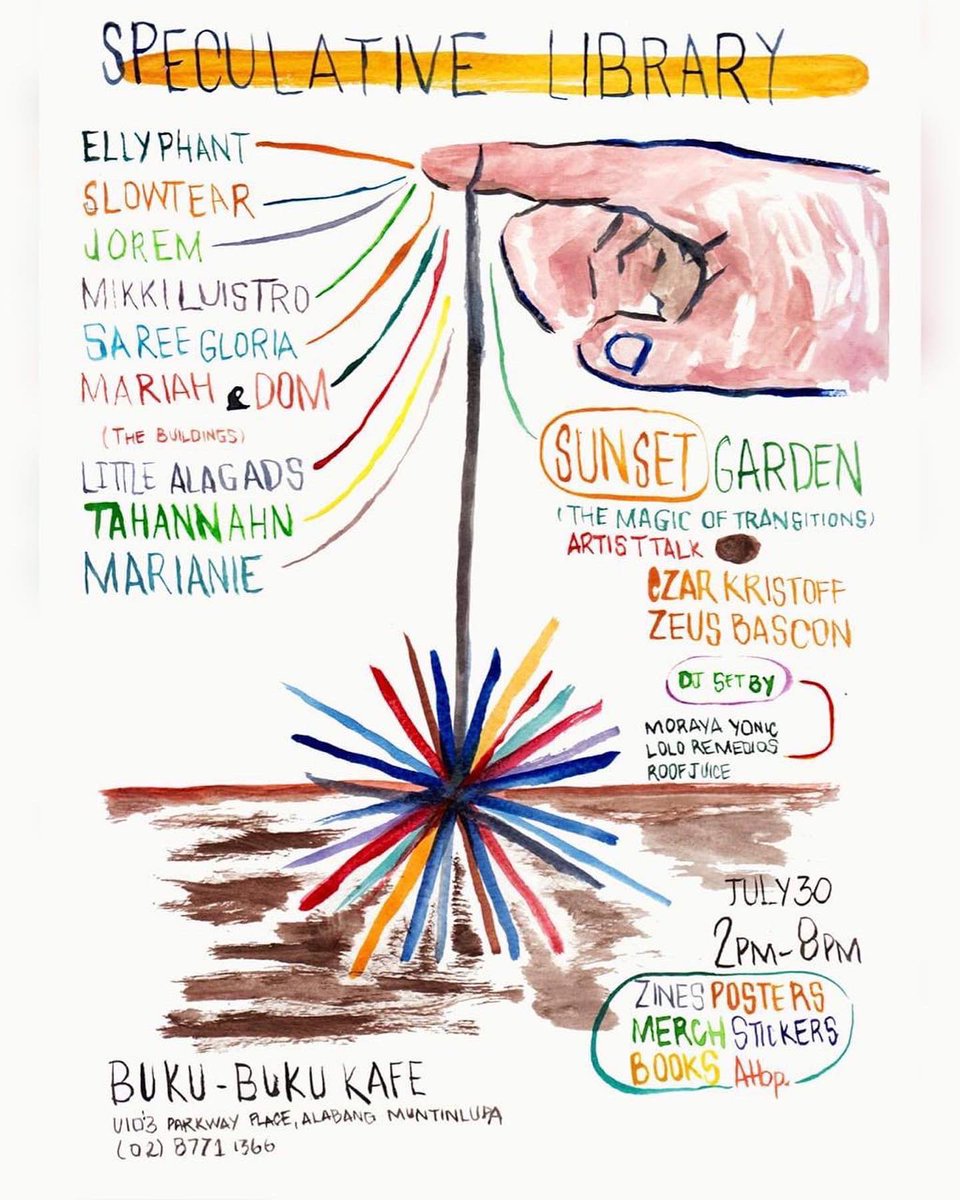 SPECULATIVE LIBRARY
ELLYPHANT
SLOWTEAR
JOREM
MIKKI LUISTRO
SAREE GLORIA
MARIAH & DOM
(THE BUILDINGS)
LITTLE ALAGADS
TAHANNAHN
MARIANIE
SUNSET GARDEN
(THE MAGIC OF TRANSITIONS)
ARTIST TALK
CZAR KRISTOFF
ZEUS BASCON
DJ SET BY
MORAYA YONIC
LOLO REMEDIOS
ROOFJUICE
JULY 30
2PM-8PM
ZINES POSTERS
MERCH STICKERS
BOOKS ATbp.
BUKU-BUKU KAFE
U103 PARKWAY PLACE, ALABANG MUNTINLUPA
(02) 8771 1366